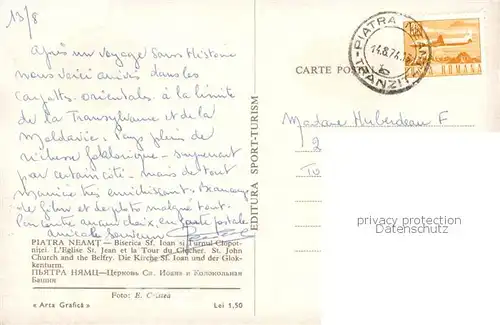 13/8
Après un voyage sans histoire
nous voici arrivés dans les
Carpattes orientales à la limite
de la Transylvanie et de la
Moldavie. Pays plein de
richesse folklorique - surprenant
par certain côté - mais de tout
manière très enrichissant.
de film et de photos malgré tout.
amical souvenir
PIATRA NEAMȚ — Biserica Sf. Ioan și Turnul Clopot-
niței. L'Eglise St. Jean et la Tour du Clocher. St. John
Church and the Belfry. Die Kirche St. Ioan und der Glok-
kenturm.
ПЬЯТРА НЯМЦ — Церковь Св. Иоана и Колокольная
Башня
Foto: E. Cristea
« Arta Grafică » Lei 1,50
EDITURA SPORT-TURISM
CARTE POȘ
PIATRA NEAMȚ
14.8.74
TRANZIT
ROMANA
Madame Huberdeau F
2
To
privacy protection
Datenschutz